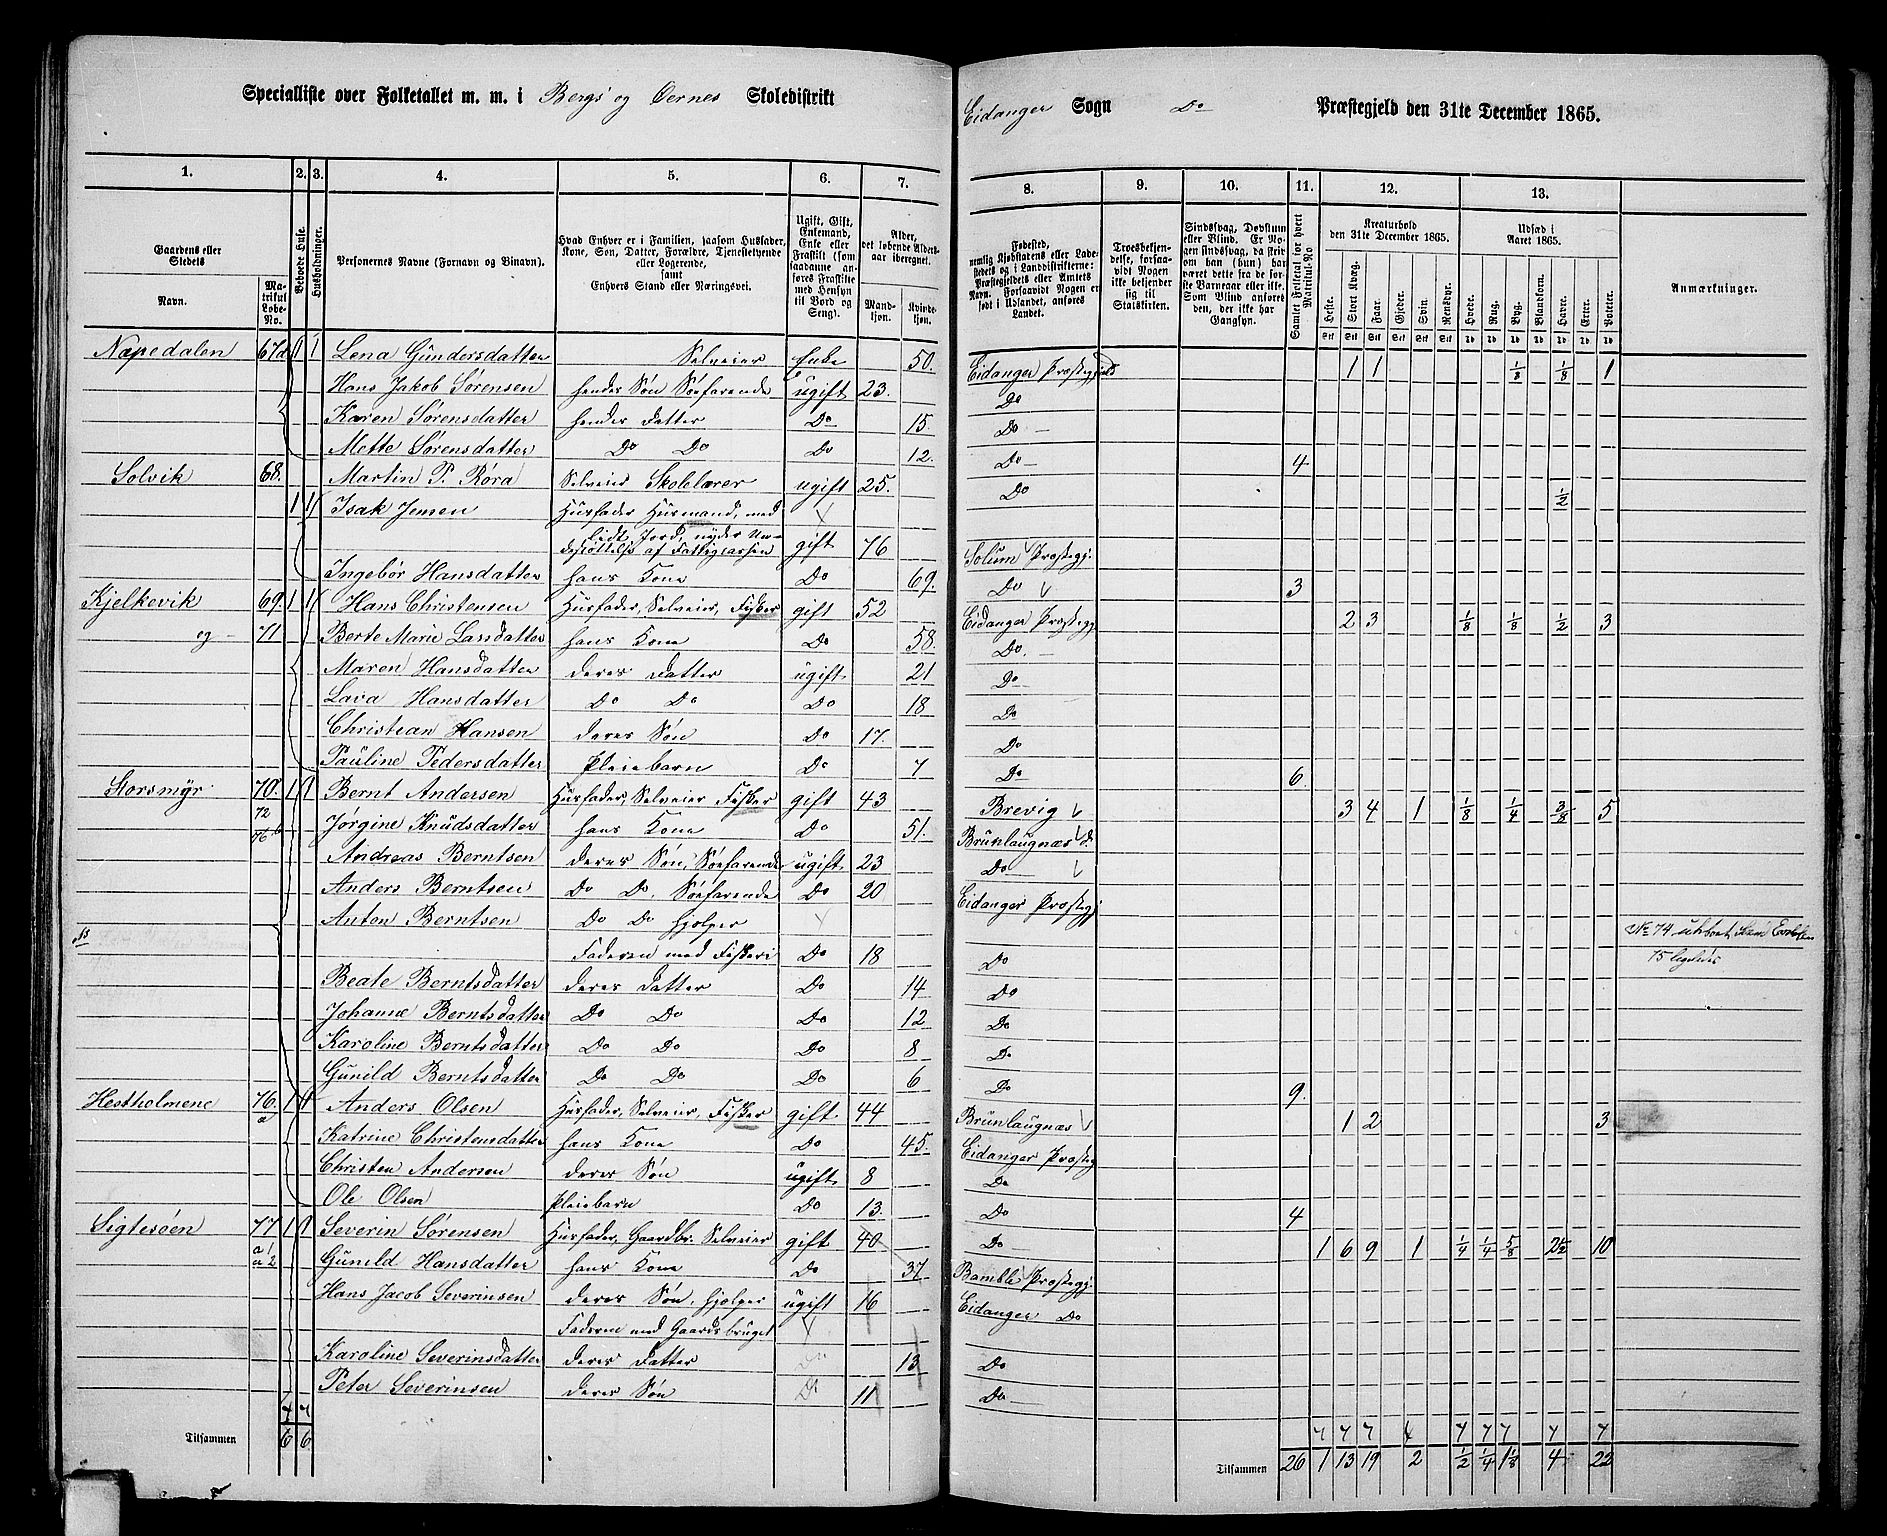 Specialliste over Folketallet m. m. i Bergs og Oernes Skoledistrikt
Eidanger Sogn Do Præstegjeld den 31te December 1865.
1. 2. 3. 4. 5. 6. 7.
8. 9. 10. 11. 12. 13.
Gaardens eller Stedets
Navn.
Matrikul Løbe-No.
Beboede Huse.
Husholdninger.
Personernes Navne (Fornavn og Binavn).
Hvad Enhver er i Familien, saasom Husfader, Kone, Søn, Datter, Forældre, Tjenestetyende eller Logerende, samt Enhvers Stand eller Næringsvei.
Ugift, Gift, Enkemand, Enke eller Fraskilt (som saadanne anføres Fraskilte med Hensyn til Bord og Seng).
Alder, det løbende Aldersaar iberegnet.
Mandkjøn. Kvindekjøn.
Fødested, nemlig Kjøbstadens eller Ladestedets og i Landdistrikterne: Præstegjeldets eller Amtets Navn. Forsaavidt Nogen er født i Udlandet, anføres Landet.
Troesbekjendelse, forsaavidt Nogen ikke bekjender sig til Statskirken.
Sindssvag, Døvstum eller Blind. Er Nogen sindssvag, da skrives om han (hun) har været dette fra de første Barneaar eller ikke. Som Blind anføres den, der ikke har Gangsyn.
Samlet Folketal for hvert Matrikul-No
Kreaturhold den 31te December 1865.
Heste. Stort Kvæg. Faar. Gjeder. Svin. Rensdyr.
Udsæd i Aaret 1865.
Hvede. Rug. Byg. Blandkorn. Havre. Erter. Poteter.
Anmærkninger.
Næpedalen 67d 1 1 Lena Gundersdatter Selveier Enke 50. Eidanger Præstegjeld 1 1 1/8 1/8 1
Hans Jakob Sørensen hendes Søn Søefarende ugift 23. Do
Karen Sørensdatter hendes Datter Do 15. Do
Mette Sørensdatter Do Do Do 12. Do 4
Solvik 68. Martin P. Røra Selveier Skolelærer ugift 25. Do 1/2
1 1 Isak Jensen Husfader Husmand, med
lidt Jord, nyder Understøttelse af Fattigcassen gift 76 Solum Præstegj.
Ingebor Hansdatter hans Kone Do 69. Do 3
Kjelkevik 69. 1 1 Hans Christensen Husfader, Selveier, Fisker gift 52 Eidanger Præstegj. 2 3 1/8 1/8 1/2 3
og 71 Berte Marie Larsdatter hans Kone Do 58. Do.
Maren Hansdatter deres Datter ugift 21 Do
Lava Hansdatter Do Do Do 18 Do
Christian Hansen deres Søn Do 17. Do
Pauline Pedersdatter Pleiebarn Do 7 Do 6
Storsmyr 70. 1 1 Bernt Andersen Husfader, Selveier Fisker gift 43 Brevig 3 4 1 1/8 1/4 3/8 5
72 76b Jørgine Knudsdatter hans Kone Do 51. Brunlaugnæs
Andreas Berntsen deres Søn, Søefarende ugift 23 Do
Anders Berntsen Do Do. Søefarende Do 20 Eidanger Præstegj
Anton Berntsen Do Do hjelper
Faderen med Fiskeri Do 18 Do
No 74 15 ligeledes
Beate Berntsdatter deres Datter Do 14 Do
Johanne Berntsdatter Do Do Do 12 Do
Karoline Berntsdatter Do Do Do 8 Do
Gunild Berntsdatter Do Do Do 6 Do 9.
Hestholmene 76. a 1 1 Anders Olsen Husfader, Selveier, Fisker gift 44 Brunlaugnæs 1 2 3
Katrine Christensdatter hans Kone Do 45. Eidanger Præsteg
Christen Andersen deres Søn ugift 8 Do
Ole Olsen Pleiebarn Do 13. Do 4
Sigtesøen 77 1 1 Severin Sørensen Husfader, Gaardbr. Selveier gift 40 Do 1 6 9 1 1/4 1/4 5/8 2 1/2 10
a1 a2 Gunild Hansdatter hans Kone Do 37 Bamble Præstegj
Hans Jacob Severinsen deres Søn, hjelper ugift 16 Eidanger Do
Faderen med Gaardsbruget
Karoline Severinsdatter deres Datter Do 13 Do
Peter Severinsen deres Søn Do 11 Do
7 7 7 7 7 7 7 7 7 7
Tilsammen 6 6
Tilsammen 26 1 13 19 2 1/2 1/4 1 1/8 4 22